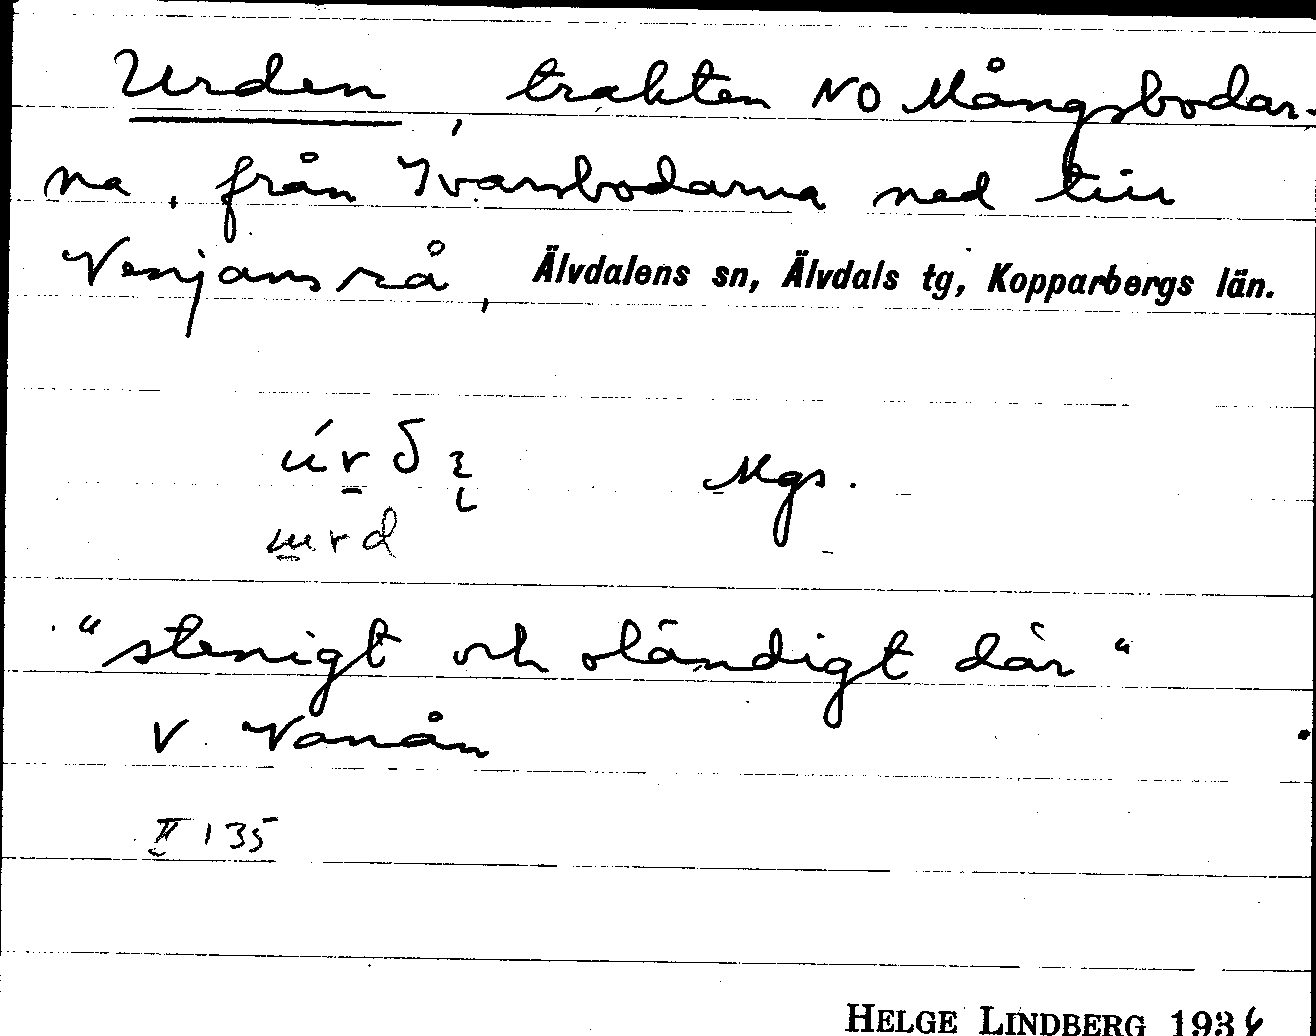 Urden, trakten NO Mångsbodar-
na, från Ivarsbodarna ned till
Venjans rå, Älvdalens sn, Älvdals tg, Kopparbergs län.
Mgs.
"stenigt och oländigt där"
V. Vanån
II 135
HELGE LINDBERG 1934